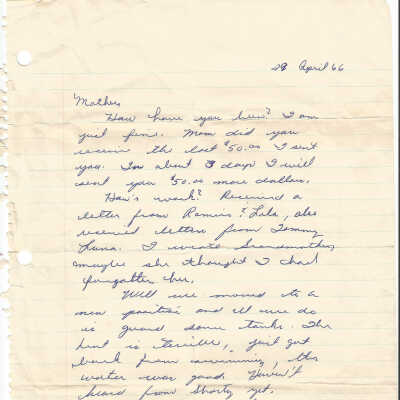 28 April 66
Mother
How have you been? I am
just fine. Mom did you
receive the last $50.00 I sent
you. In about 3 days I will
send you $50.00 more dollars.
How's work? Received a
letter from Ramiro & Lila, also
received letters from Tommy
Luna. I wrote Grandmother,
maybe she thought I had
forgotten her.
Well we moved to a
new position and all we do
is guard some tanks. The
heat is terrible, just got
back from swimming, the
water was good. Haven't
heard from Shorty yet.